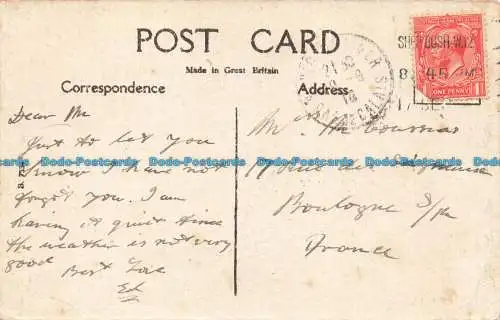 POST CARD
Made in Great Britain
Correspondence
Address
SHEP. BUSH. W.12
8 45 PM
ONE PENNY
1
Dear
Just to let you
know I have not
forgot you. I am
having it quiet since
the weather is not very
good
Best Love
Ed
Boulogne S/M
France
Dodo-Postcards Dodo-Postcards Dodo-Postcards Dodo-Postcards Dodo-Postcards